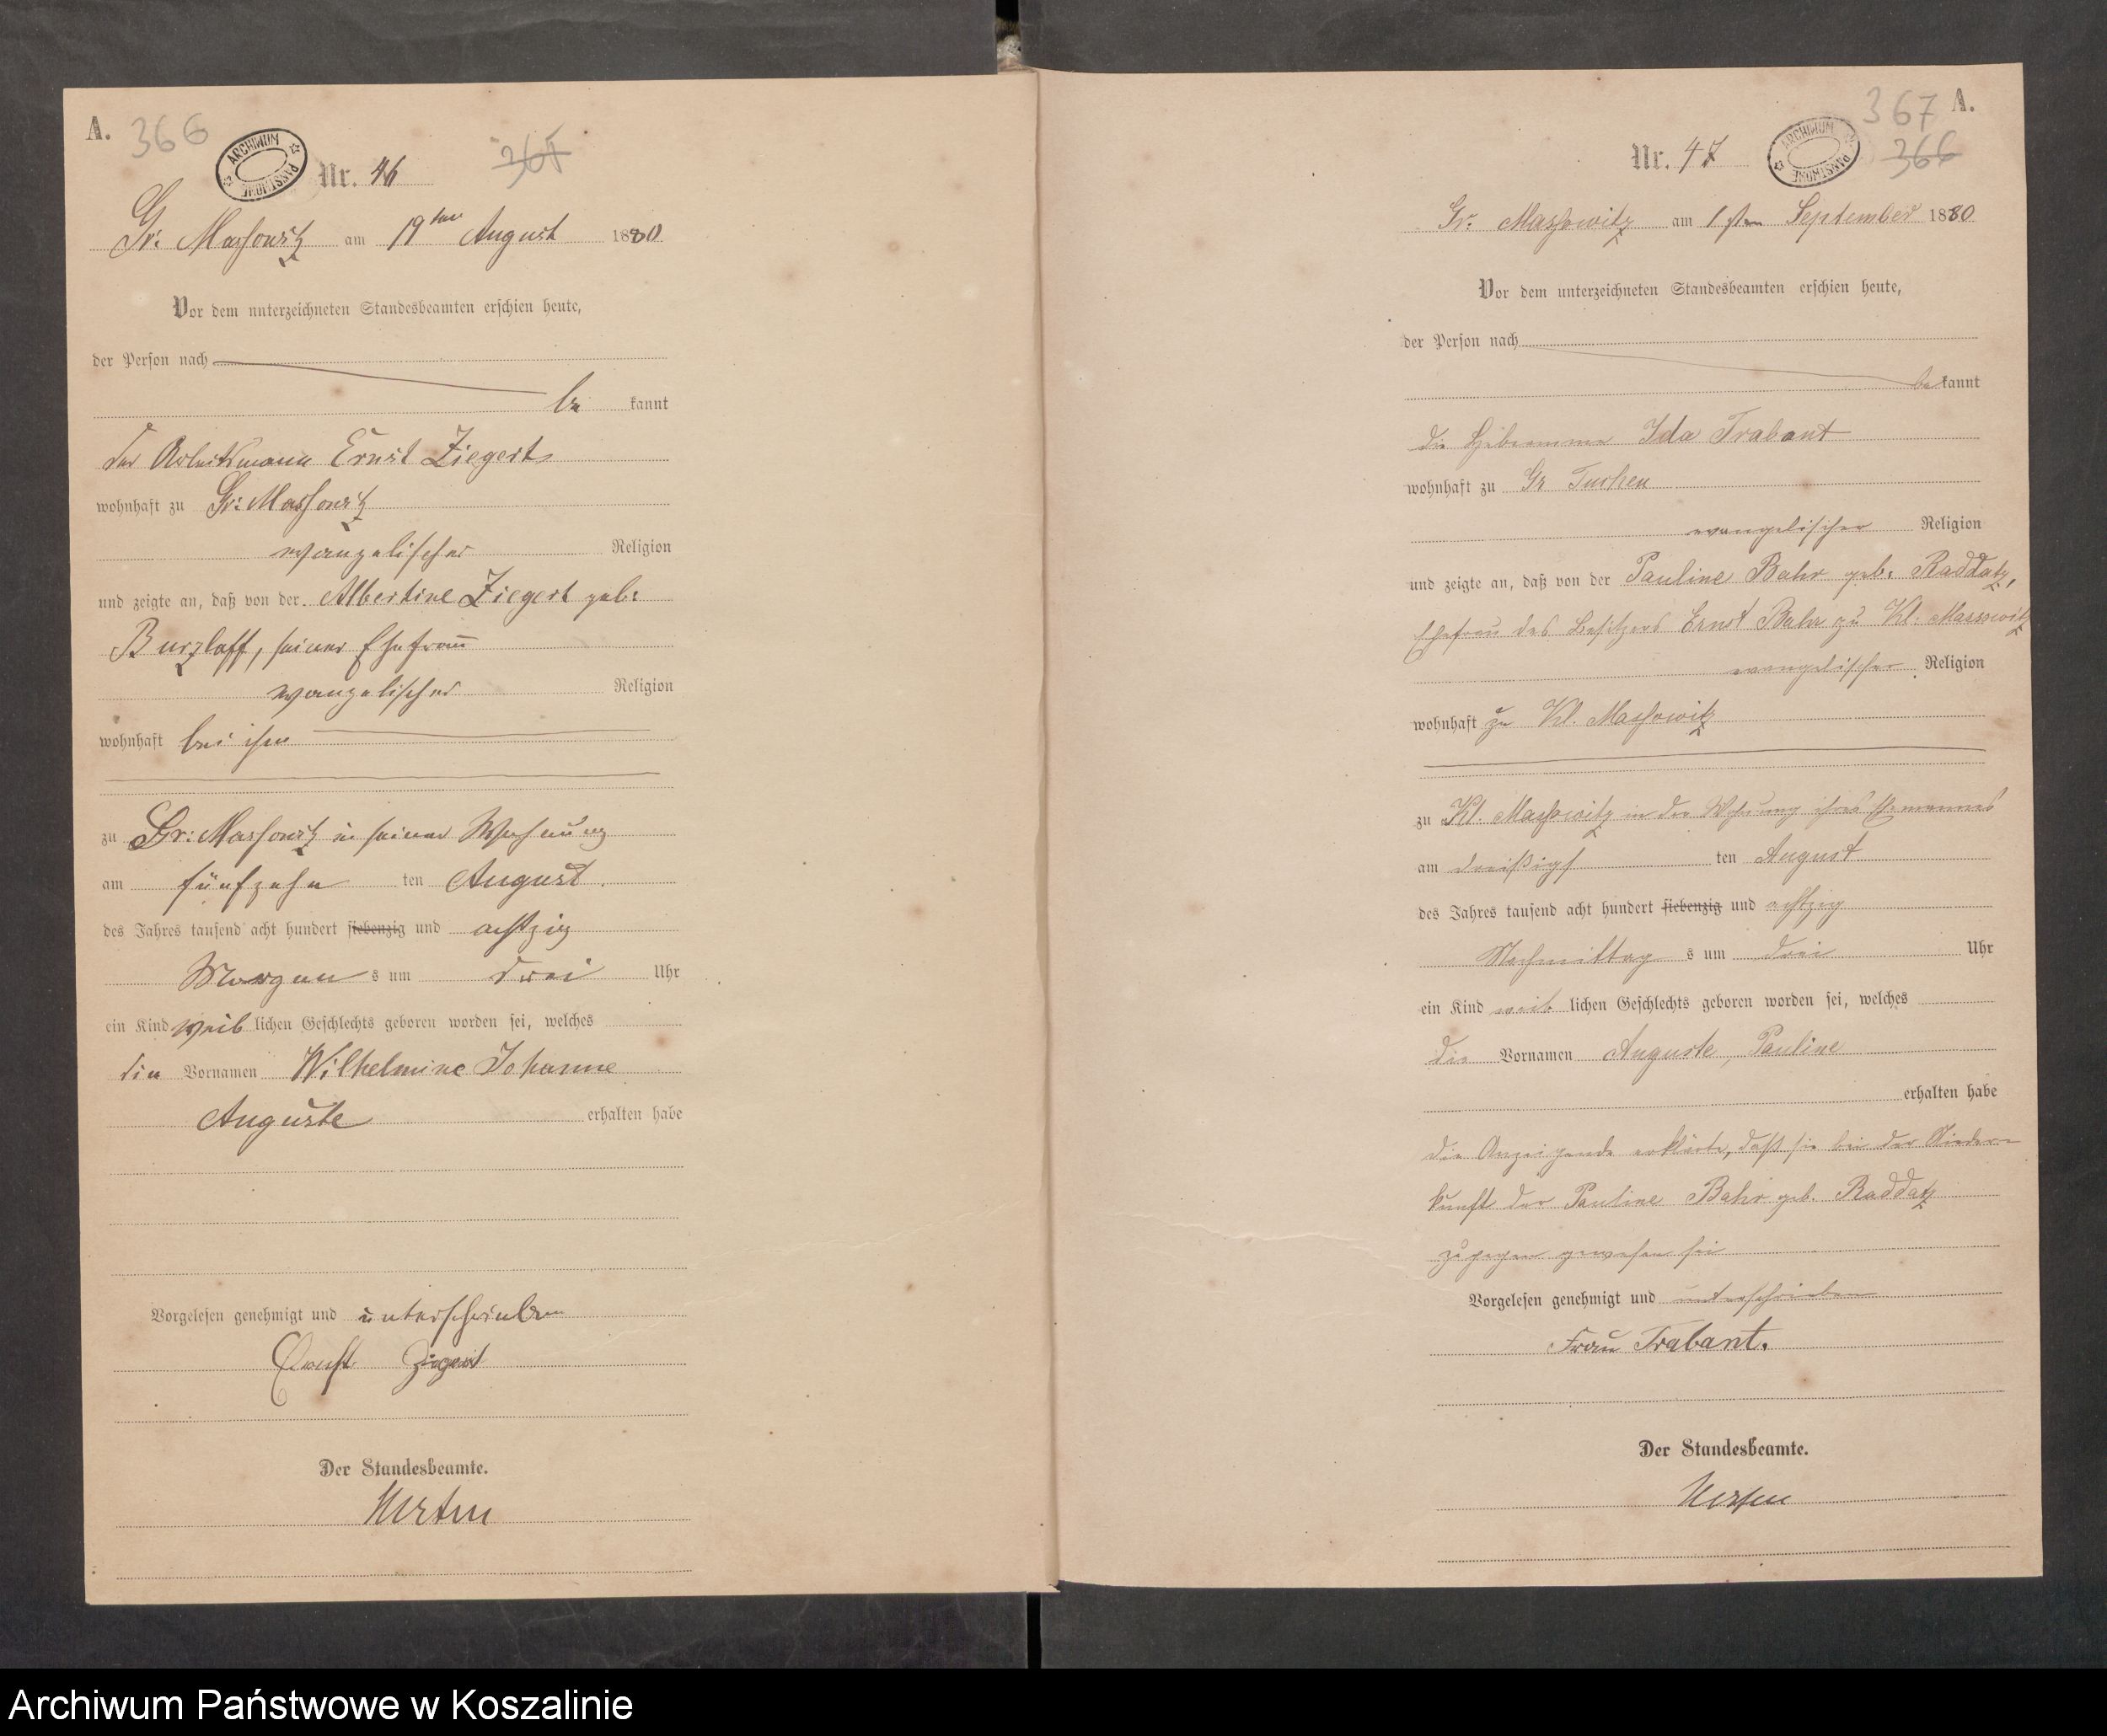 A. 366
ARCHIWUM PAŃSTWOWE
Nr. 46 365
Gr: Massowitz am 19ten August 1880
Vor dem unterzeichneten Standesbeamten erschien heute,
der Person nach
be kannt
der Arbeitsmann Ernst Ziegert
wohnhaft zu Gr: Massowitz
evangelischer Religion
und zeigte an, daß von der Albertine Ziegert geb:
Burzlaff, seiner Ehefrau
evangelischer Religion
wohnhaft bei ihm
zu Gr: Massowitz in seiner Wohnung
am fünfzehn ten August
des Jahres tausend acht hundert siebenzig und achtzig
Morgen s um drei Uhr
ein Kind weib lichen Geschlechts geboren worden sei, welches
die Vornamen Wilhelmine Johanne
Auguste erhalten habe
Vorgelesen genehmigt und unterschrieben
Ernst Ziegert
Der Standesbeamte.
367 A.
Nr. 47 ARCHIWUM PAŃSTWOWE 366
Gr: Massowitz am 1sten September 1880
Vor dem unterzeichneten Standesbeamten erschien heute,
der Person nach
be kannt
die Hebamme Ida Trabant
wohnhaft zu Gr Tuchen
evangelischer Religion
und zeigte an, daß von der Pauline Bahr geb: Raddatz,
Ehefrau des Besitzers Ernst Bahr zu Kl. Massowitz
evangelischer Religion
wohnhaft zu Kl. Massowitz
zu Kl. Massowitz in der Wohnung ihres Ehemannes
am dreißigs ten August
des Jahres tausend acht hundert siebenzig und achtzig
Nachmittag s um drei Uhr
ein Kind weib lichen Geschlechts geboren worden sei, welches
die Vornamen Auguste, Pauline
erhalten habe
die Anzeigende erklärte, daß sie bei der Nieder-
kunft der Pauline Bahr geb. Raddatz
zugegen gewesen sei
Vorgelesen genehmigt und unterschrieben
Frau Trabant.
Der Standesbeamte.
Archiwum Państwowe w Koszalinie